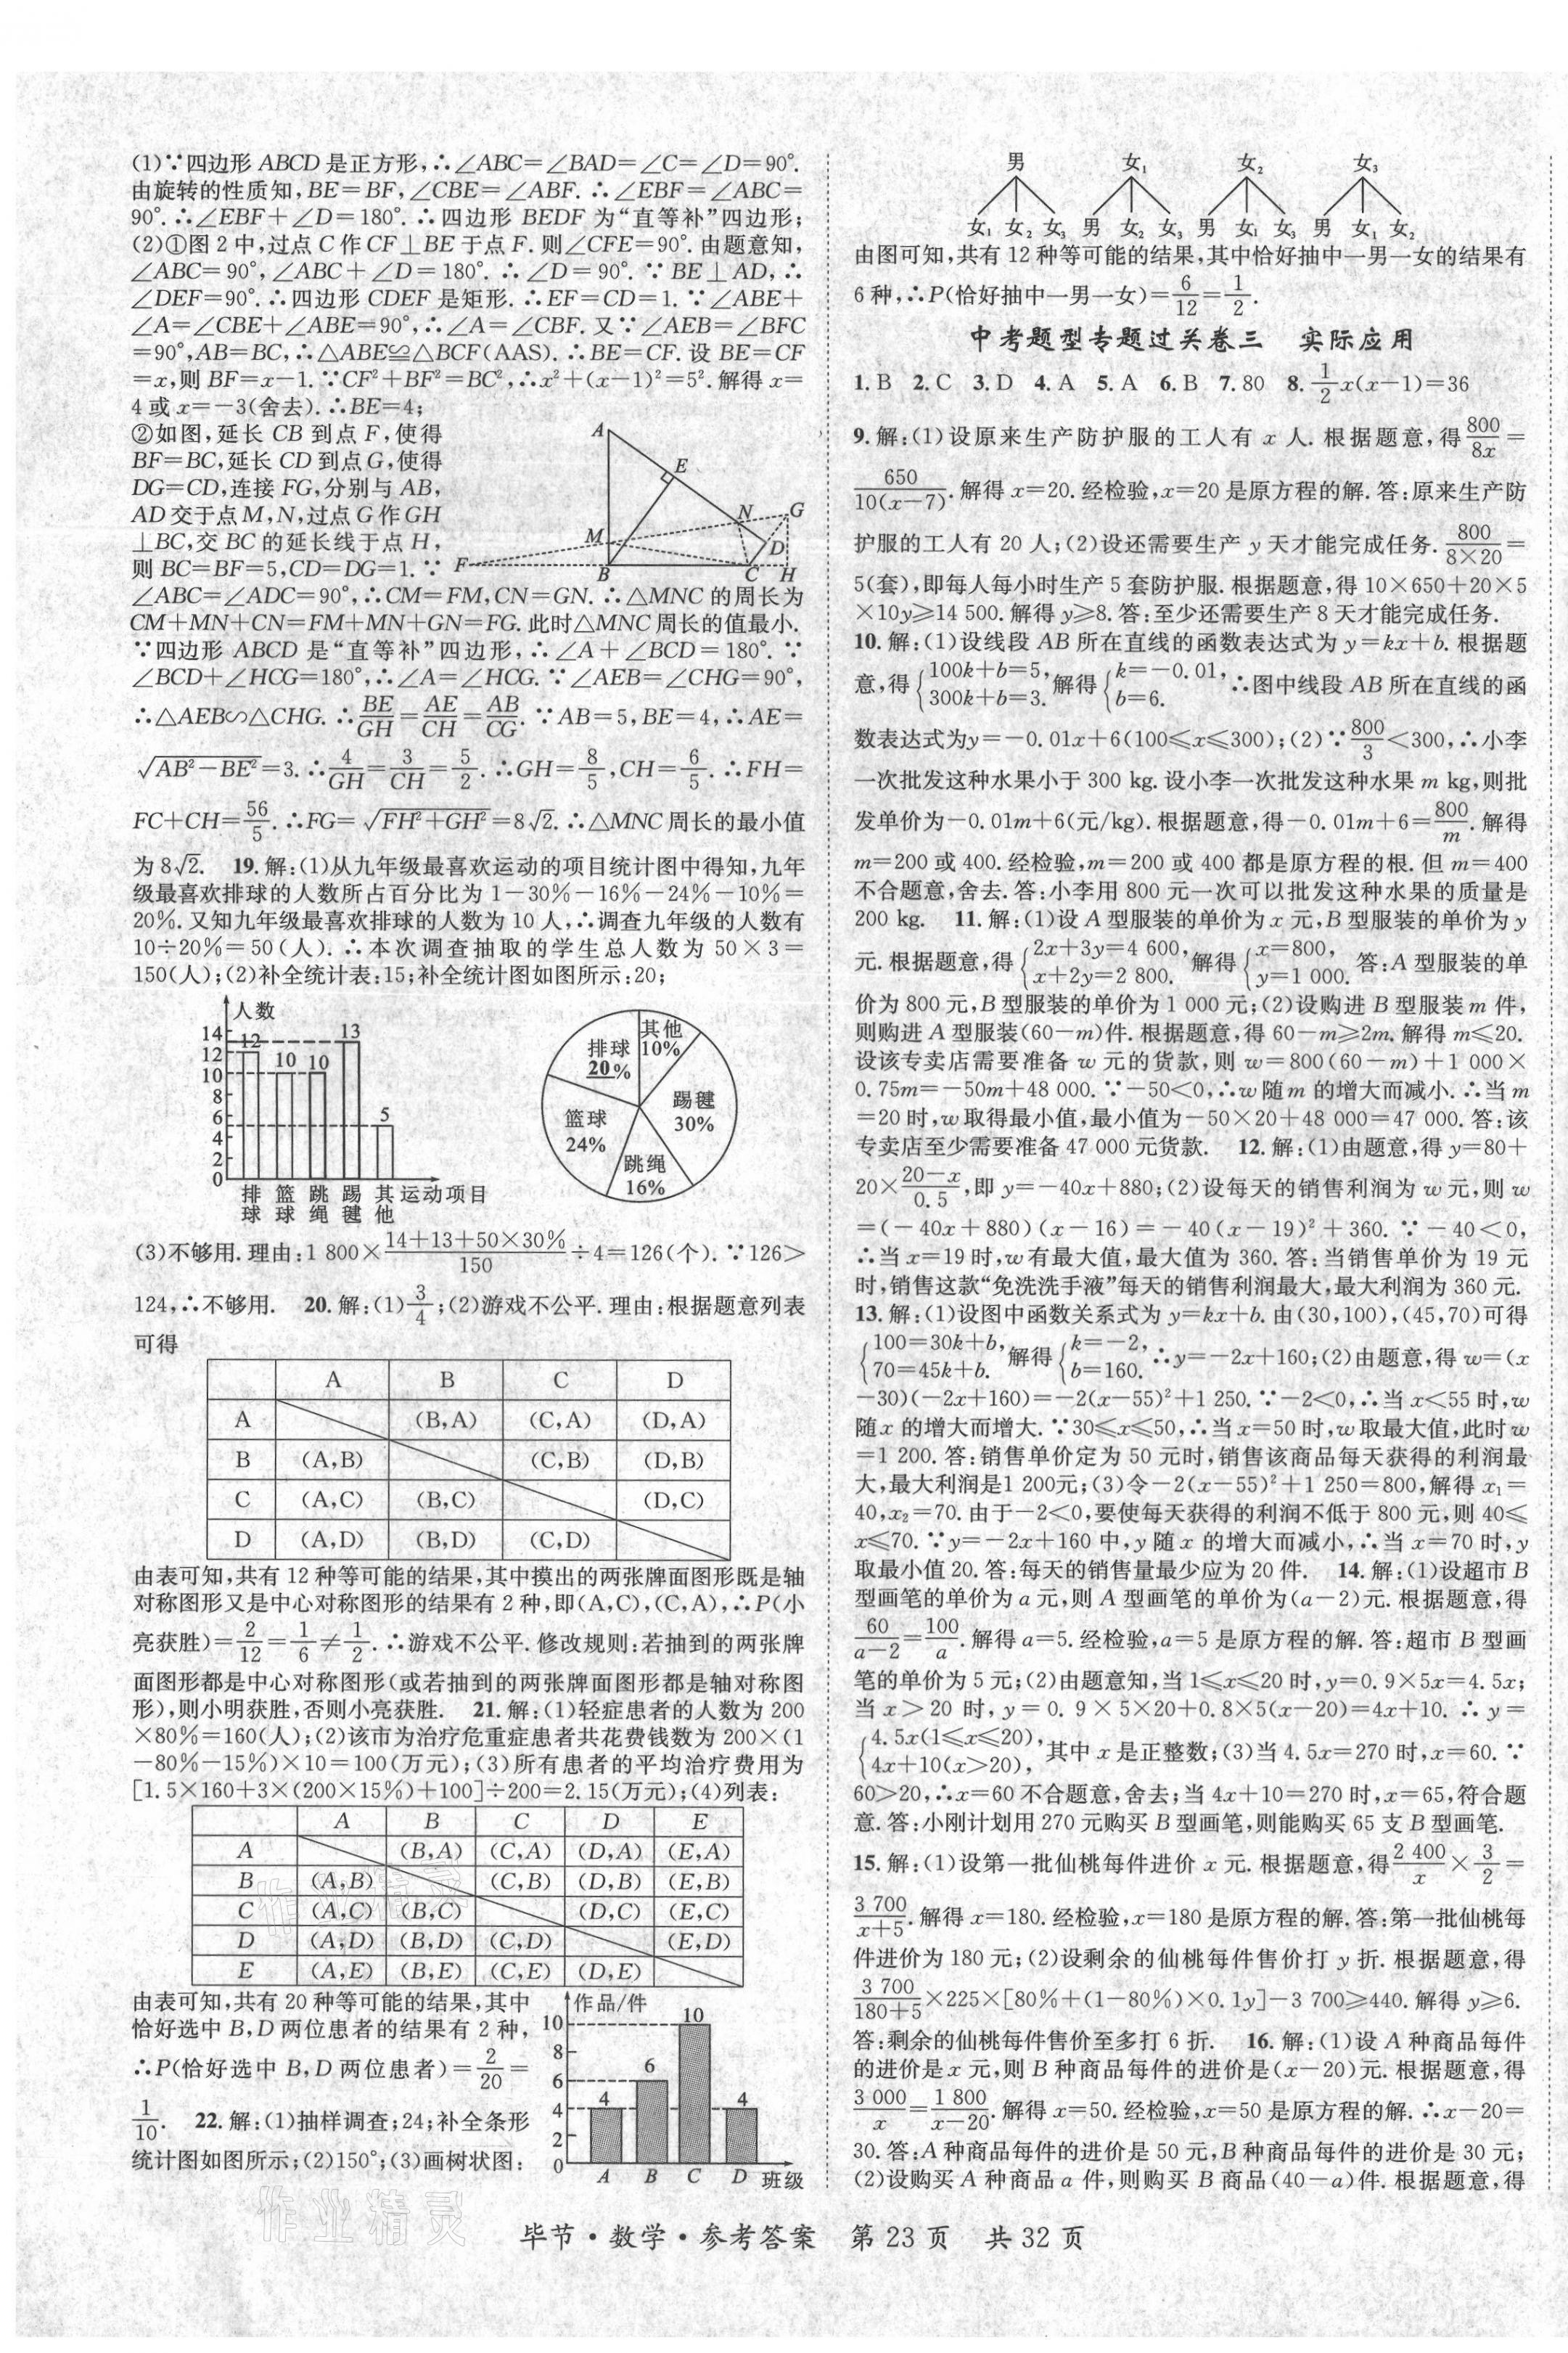 (1)∵四边形 ABCD 是正方形,∴∠ABC=∠BAD=∠C=∠D=90°.
由旋转的性质知,BE=BF,∠CBE=∠ABF.∴∠EBF=∠ABC=
90°.∴∠EBF+∠D=180°.∴四边形 BEDF 为“直等补”四边形;
(2)①图 2 中,过点 C 作 CF⊥BE 于点 F.则∠CFE=90°.由题意知,
∠ABC=90°,∠ABC+∠D=180°.∴∠D=90°.∵BE⊥AD,∴
∠DEF=90°.∴四边形 CDEF 是矩形.∴EF=CD=1.∵∠ABE+
∠A=∠CBE+∠ABE=90°,∴∠A=∠CBF.又∵∠AEB=∠BFC
=90°,AB=BC,∴△ABE≌△BCF(AAS).∴BE=CF.设 BE=CF
=x,则 BF=x-1.∵CF²+BF²=BC²,∴x²+(x-1)²=5².解得 x=
4 或 x=-3(舍去).∴BE=4;
②如图,延长 CB 到点 F,使得
BF=BC,延长 CD 到点 G,使得
DG=CD,连接 FG,分别与 AB,
AD 交于点 M,N,过点 G 作 GH
⊥BC,交 BC 的延长线于点 H,
则 BC=BF=5,CD=DG=1.∵
A
E
N
G
M
D
F
B
C
H
∠ABC=∠ADC=90°,∴CM=FM,CN=GN.∴△MNC 的周长为
CM+MN+CN=FM+MN+GN=FG.此时△MNC 周长的值最小.
∵四边形 ABCD 是“直等补”四边形,∴∠A+∠BCD=180°.∵
∠BCD+∠HCG=180°,∴∠A=∠HCG.∵∠AEB=∠CHG=90°,
∴△AEB∽△CHG.∴BE/GH=AE/CH=AB/CG.∵AB=5,BE=4,∴AE=
√(AB²-BE²)=3.∴4/GH=3/CH=5/2.∴GH=8/5,CH=6/5.∴FH=
FC+CH=56/5.∴FG=√(FH²+GH²)=8√2.∴△MNC 周长的最小值
为 8√2. 19.解:(1)从九年级最喜欢运动的项目统计图中得知,九年
级最喜欢排球的人数所占百分比为 1-30%-16%-24%-10%=
20%.又知九年级最喜欢排球的人数为 10 人,∴调查九年级的人数有
10÷20%=50(人).∴本次调查抽取的学生总人数为 50×3=
150(人);(2)补全统计表:15;补全统计图如图所示:20;
人数
14
12
10
8
6
4
2
0
12
10
10
13
5
排球 篮球 跳绳 踢毽 其他 运动项目
其他 10%
排球 20%
踢毽 30%
篮球 24%
跳绳 16%
(3)不够用.理由:1 800×(14+13+50×30%)/150÷4=126(个).∵126>
124,∴不够用. 20.解:(1)3/4;(2)游戏不公平.理由:根据题意列表
可得
A B C D
A (B,A) (C,A) (D,A)
B (A,B) (C,B) (D,B)
C (A,C) (B,C) (D,C)
D (A,D) (B,D) (C,D)
由表可知,共有 12 种等可能的结果,其中摸出的两张牌面图形既是轴
对称图形又是中心对称图形的结果有 2 种,即(A,C),(C,A),∴P(小
亮获胜)=2/12=1/6≠1/2.∴游戏不公平.修改规则:若抽到的两张牌
面图形都是中心对称图形(或若抽到的两张牌面图形都是轴对称图
形),则小明获胜,否则小亮获胜. 21.解:(1)轻症患者的人数为 200
×80%=160(人);(2)该市为治疗危重症患者共花费钱数为 200×(1
-80%-15%)×10=100(万元);(3)所有患者的平均治疗费用为
[1.5×160+3×(200×15%)+100]÷200=2.15(万元);(4)列表:
A B C D E
A (B,A) (C,A) (D,A) (E,A)
B (A,B) (C,B) (D,B) (E,B)
C (A,C) (B,C) (D,C) (E,C)
D (A,D) (B,D) (C,D) (E,D)
E (A,E) (B,E) (C,E) (D,E)
由表可知,共有 20 种等可能的结果,其中
恰好选中 B,D 两位患者的结果有 2 种,
∴P(恰好选中 B,D 两位患者)=2/20=
1/10. 22.解:(1)抽样调查;24;补全条形
统计图如图所示;(2)150°;(3)画树状图:
作品/件
10
8
6
4
2
0
4
6
10
4
A B C D 班级
男 女₁ 女₂ 女₃
女₁ 女₂ 女₃ 男 女₂ 女₃ 男 女₁ 女₃ 男 女₁ 女₂
由图可知,共有 12 种等可能的结果,其中恰好抽中一男一女的结果有
6 种,∴P(恰好抽中一男一女)=6/12=1/2.
中考题型专题过关卷三 实际应用
1.B 2.C 3.D 4.A 5.A 6.B 7.80 8.1/2x(x-1)=36
9.解:(1)设原来生产防护服的工人有 x 人.根据题意,得800/8x=
650/10(x-7).解得 x=20.经检验,x=20 是原方程的解.答:原来生产防
护服的工人有 20 人;(2)设还需要生产 y 天才能完成任务.800/(8×20)=
5(套),即每人每小时生产 5 套防护服.根据题意,得 10×650+20×5
×10y⩾14 500.解得 y⩾8.答:至少还需要生产 8 天才能完成任务.
10.解:(1)设线段 AB 所在直线的函数表达式为 y=kx+b.根据题
意,得{100k+b=5, 300k+b=3.解得{k=-0.01, b=6.∴图中线段 AB 所在直线的函
数表达式为y=-0.01x+6(100⩽x⩽300);(2)∵800/3<300,∴小李
一次批发这种水果小于 300 kg.设小李一次批发这种水果 m kg,则批
发单价为-0.01m+6(元/kg).根据题意,得-0.01m+6=800/m.解得
m=200 或 400.经检验,m=200 或 400 都是原方程的根.但 m=400
不合题意,舍去.答:小李用 800 元一次可以批发这种水果的质量是
200 kg. 11.解:(1)设 A 型服装的单价为 x 元,B 型服装的单价为 y
元.根据题意,得{2x+3y=4 600, x+2y=2 800.解得{x=800, y=1 000.答:A 型服装的单
价为 800 元,B 型服装的单价为 1 000 元;(2)设购进 B 型服装 m 件,
则购进 A 型服装(60-m)件.根据题意,得 60-m⩾2m.解得 m⩽20.
设该专卖店需要准备 w 元的货款,则 w=800(60-m)+1 000×
0.75m=-50m+48 000.∵-50<0,∴w 随 m 的增大而减小.∴当 m
=20 时,w 取得最小值,最小值为-50×20+48 000=47 000.答:该
专卖店至少需要准备 47 000 元货款. 12.解:(1)由题意,得 y=80+
20×(20-x)/0.5,即 y=-40x+880;(2)设每天的销售利润为 w 元,则 w
=(-40x+880)(x-16)=-40(x-19)²+360.∵-40<0,
∴当 x=19 时,w 有最大值,最大值为 360.答:当销售单价为 19 元
时,销售这款“免洗洗手液”每天的销售利润最大,最大利润为 360 元.
13.解:(1)设图中函数关系式为 y=kx+b.由(30,100),(45,70)可得
{100=30k+b, 70=45k+b.解得{k=-2, b=160.∴y=-2x+160;(2)由题意,得 w=(x
-30)(-2x+160)=-2(x-55)²+1 250.∵-2<0,∴当 x<55 时,w
随 x 的增大而增大.∵30⩽x⩽50,∴当 x=50 时,w 取最大值,此时 w
=1 200.答:销售单价定为 50 元时,销售该商品每天获得的利润最
大,最大利润是1 200元;(3)令-2(x-55)²+1 250=800,解得 x₁=
40,x₂=70.由于-2<0,要使每天获得的利润不低于 800 元,则 40⩽
x⩽70.∵y=-2x+160 中,y 随 x 的增大而减小,∴当 x=70 时,y
取最小值 20.答:每天的销售量最少应为 20 件. 14.解:(1)设超市 B
型画笔的单价为 a 元,则 A 型画笔的单价为(a-2)元.根据题意,得
60/(a-2)=100/a.解得 a=5.经检验,a=5 是原方程的解.答:超市 B 型画
笔的单价为 5 元;(2)由题意知,当 1⩽x⩽20 时,y=0.9×5x=4.5x;
当 x>20 时,y=0.9×5×20+0.8×5(x-20)=4x+10.∴y=
{4.5x(1⩽x⩽20), 4x+10(x>20),其中 x 是正整数;(3)当 4.5x=270 时,x=60.∵
60>20,∴x=60 不合题意,舍去;当 4x+10=270 时,x=65,符合题
意.答:小刚计划用 270 元购买 B 型画笔,则能购买 65 支 B 型画笔.
15.解:(1)设第一批仙桃每件进价 x 元.根据题意,得2 400/x×3/2=
3 700/(x+5).解得 x=180.经检验,x=180 是原方程的解.答:第一批仙桃每
件进价为 180 元;(2)设剩余的仙桃每件售价打 y 折.根据题意,得
3 700/(180+5)×225×[80%+(1-80%)×0.1y]-3 700⩾440.解得 y⩾6.
答:剩余的仙桃每件售价至多打 6 折. 16.解:(1)设 A 种商品每件
的进价是 x 元,则 B 种商品每件的进价是(x-20)元.根据题意,得
3 000/x=1 800/(x-20).解得 x=50.经检验,x=50 是原方程的解.∴x-20=
30.答:A 种商品每件的进价是 50 元,B 种商品每件的进价是 30 元;
(2)设购买 A 种商品 a 件,则购买 B 商品(40-a)件.根据题意,得
作业精灵
毕节·数学·参考答案 第 23 页 共 32 页